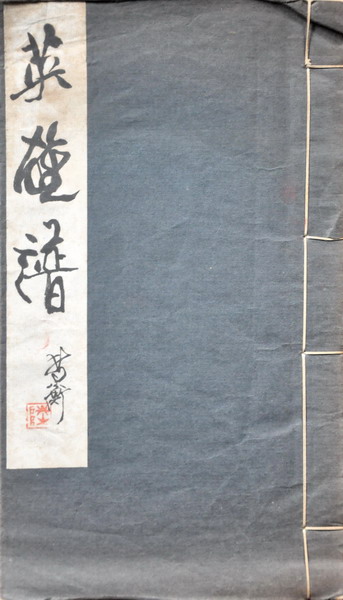 英雄譜
楚衡